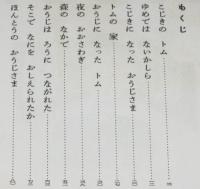 もくじ
こじきの トム
ゆめでは ないかしら
こじきに なった おうじさま
トムの 家
おうじに なった トム
夜の おおさわぎ
森の なかで
おうじは ろうに つながれた
そこで なにを おしえられたか
ほんとうの おうじさま